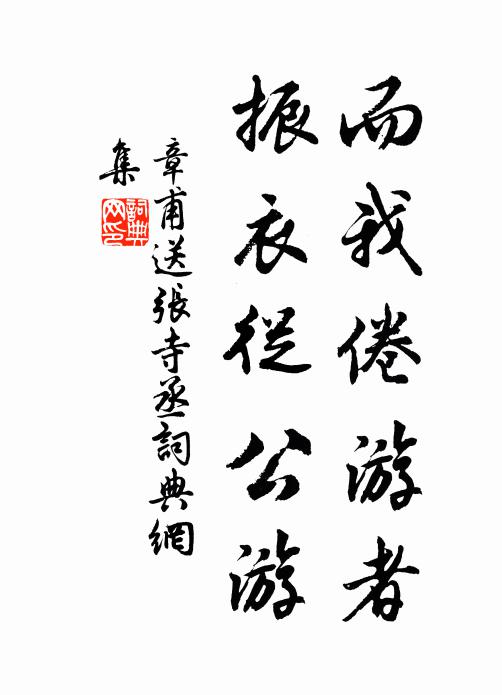 而我倦游者
振衣從公游
章甫送張寺丞詞典網
集
詞典
网印